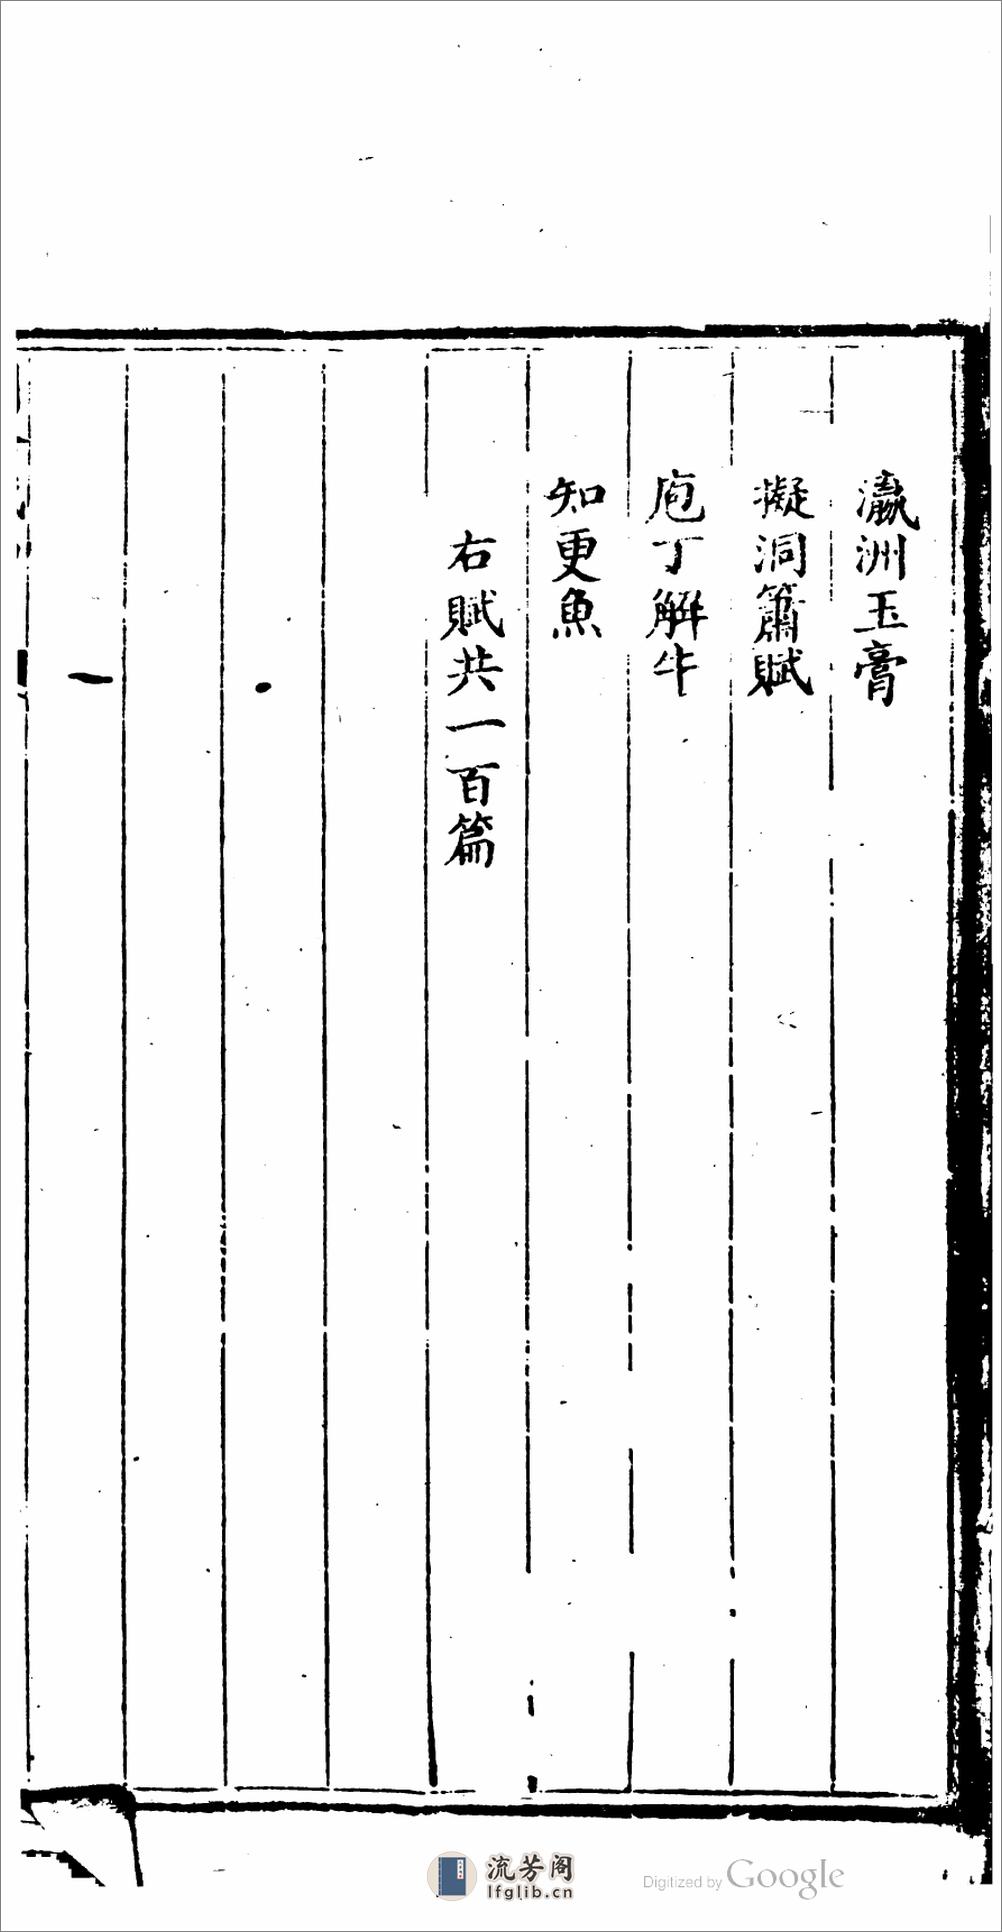 瀛洲玉膏
擬洞簫賦
庖丁解牛
知更魚
右賦共一百篇
流芳阁
lfglib.cn
Digitized by Google